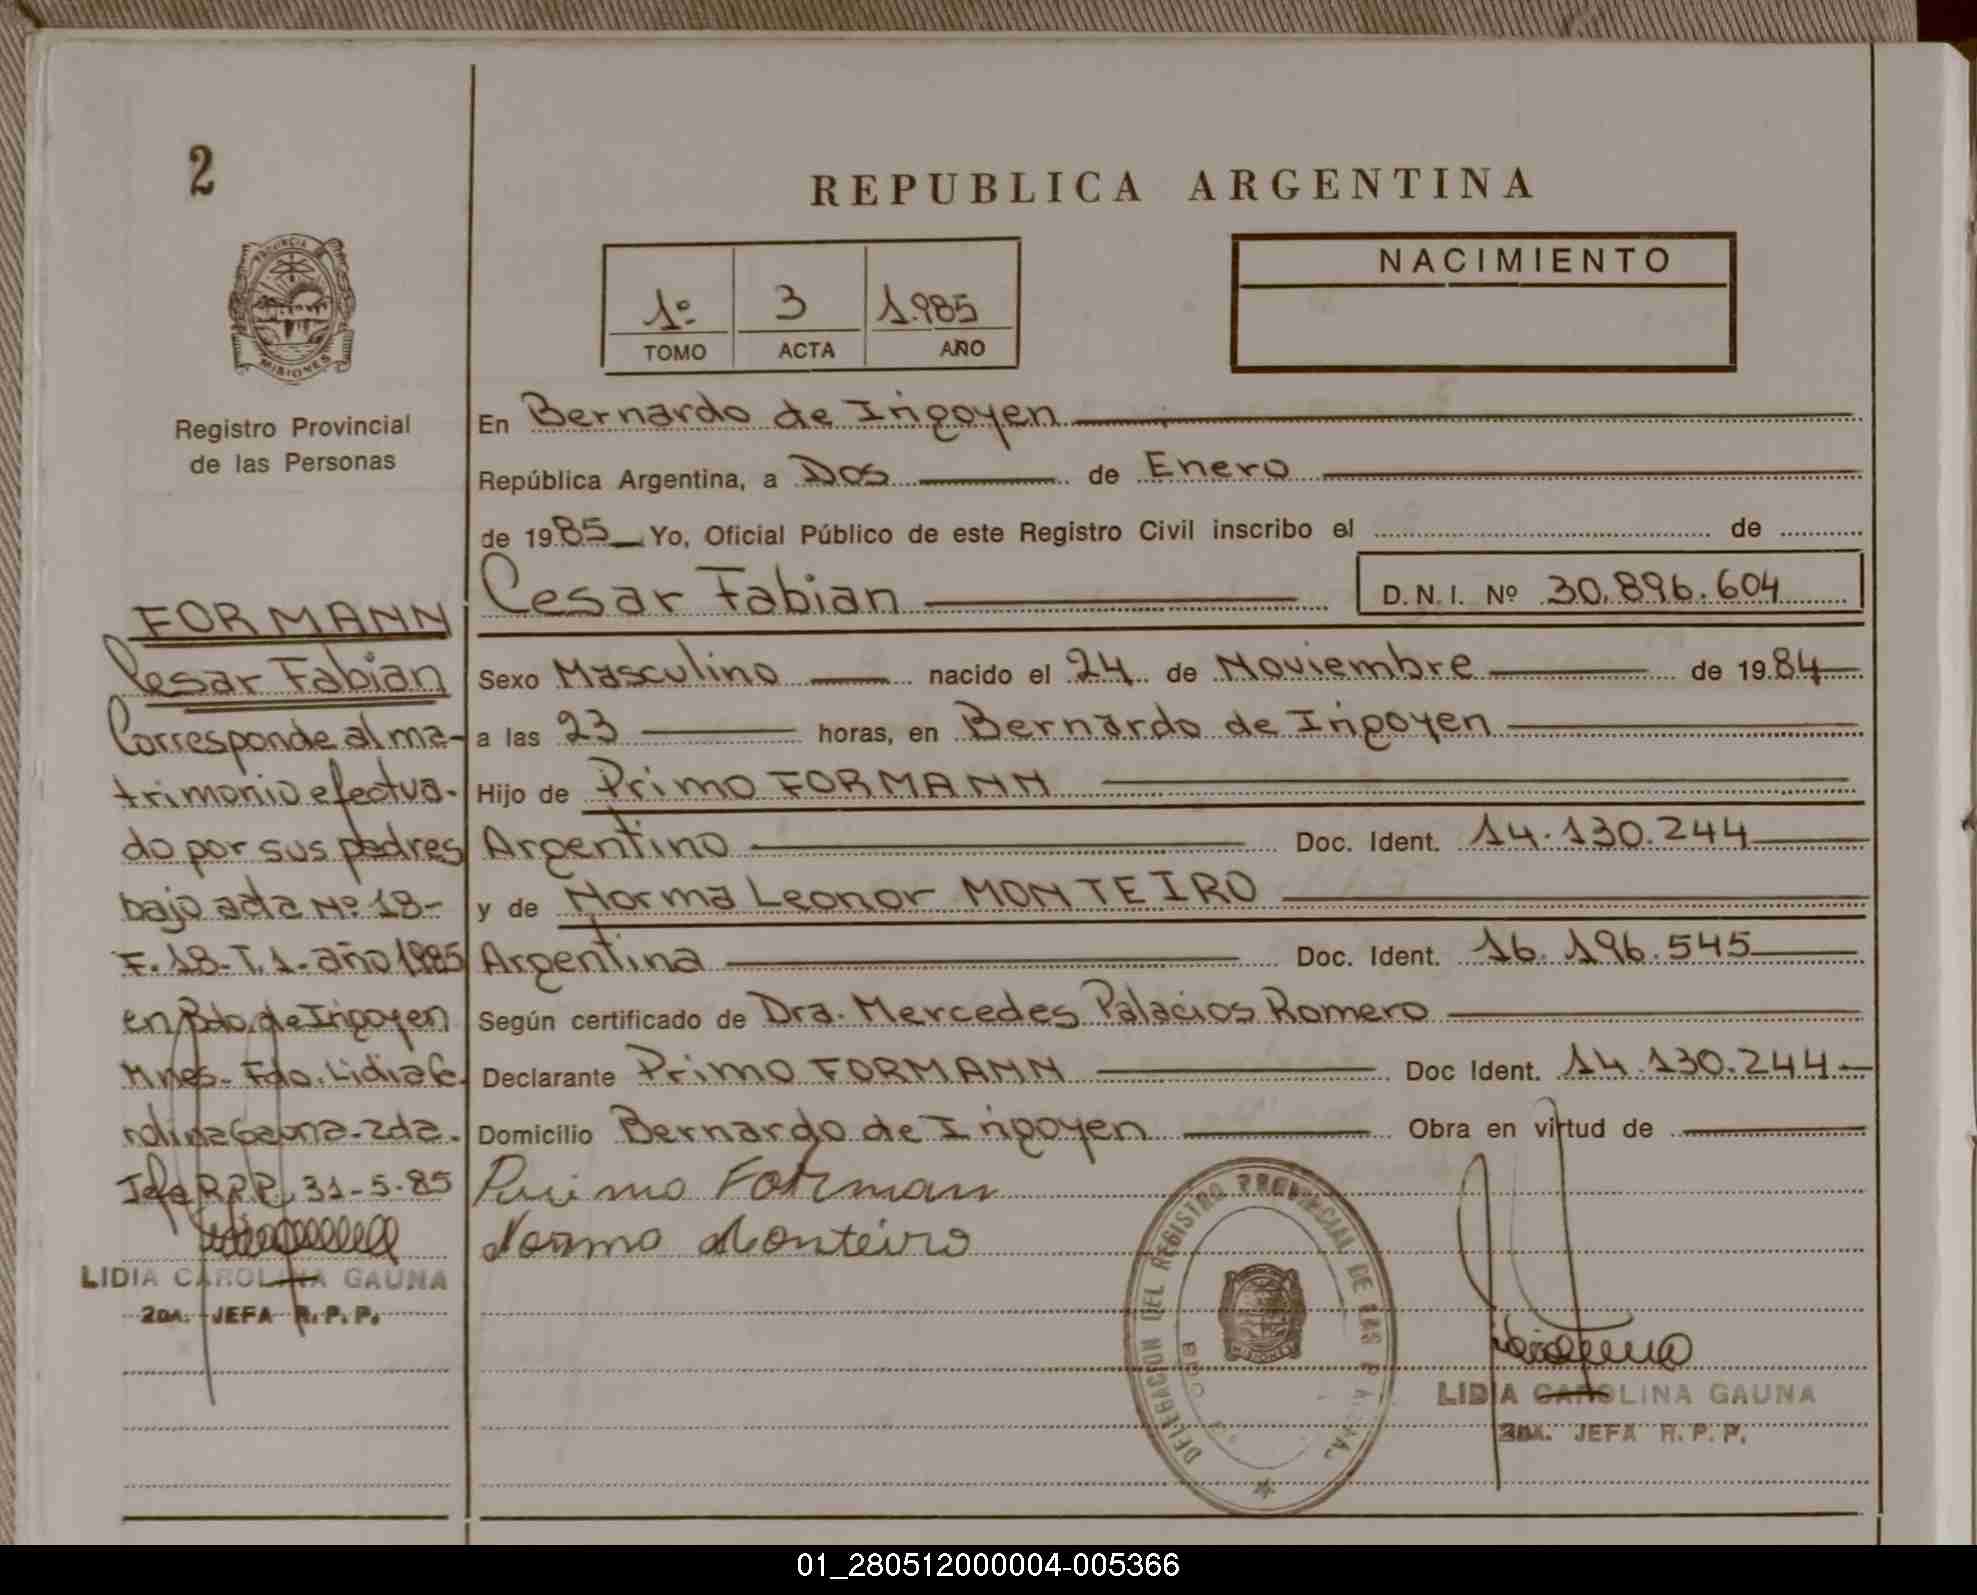 2
REPUBLICA ARGENTINA
PROVINCIA
MISIONES
Registro Provincial
de las Personas
1º 3 1.985
TOMO ACTA AÑO
NACIMIENTO
En Bernardo de Irigoyen
República Argentina, a Dos de Enero
de 1985 Yo, Oficial Público de este Registro Civil inscribo el de
Cesar Fabian D.N.I. Nº 30.896.604
Sexo Masculino nacido el 24 de Noviembre de 1984
a las 23 horas, en Bernardo de Irigoyen
Hijo de Primo FORMANN
Argentino Doc. Ident. 14.130.244
y de Norma Leonor MONTEIRO
Argentina Doc. Ident. 16.196.545
Según certificado de Dra. Mercedes Palacios Romero
Declarante Primo FORMANN Doc Ident. 14.130.244
Domicilio Bernardo de Irigoyen Obra en virtud de
Primo Forman
Norma Monteiro
FORMANN
Cesar Fabian
Corresponde al ma-
trimonio efectua-
do por sus padres
bajo acta Nº 18-
F. 18- T. 1. año 1985
en Bdo. de Irigoyen
Mnes- Fdo. Lidia Ca
rolina Gauna- 2da.
Jefa R.P.P. 31-5-85
LIDIA CAROLINA GAUNA
2DA. JEFA R. P. P.
DELEGACION DEL REGISTRO PROVINCIAL DE LAS
MISIONES
LIDIA CAROLINA GAUNA
2DA. JEFA R. P. P.
01_280512000004-005366